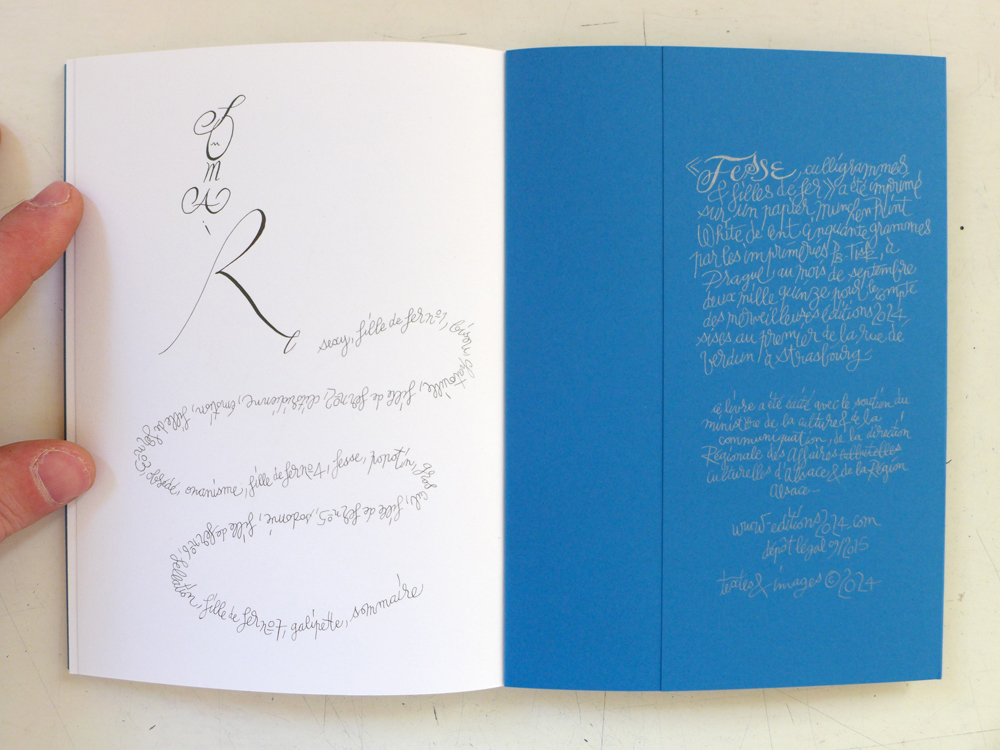 SOmmAiRe
sexy, fille de fer n°1, bisou, chatouille,
fille de fer n°2, clitoridienne, émotion, fille de fer n°3,
onanisme, fille de fer n°4, fesse, popotin, gros
cul, fille de fer n°5, sodomie, fille de fer n°6,
fellation, fille de fer n°7, galipette, sommaire
« Fesse, culligrammes
& filles de fer » a été imprimé
sur un papier, munken print
White de cent cinquante grammes
par les imprimeries PB-Tisk, à
Prague, au mois de septembre
deux mille quinze pour le compte
des merveilleuses éditions 2024,
sises au premier de la rue de
verdun à strasbourg-
ce livre a été édité avec le soutien du
ministère de la culture & de la
communication, de la direction
Régionale des Affaires
culturelles d'Alsace & de la Région
Alsace-
www-editions2024-com
dépôt légal 09/2015
textes & images © 2024